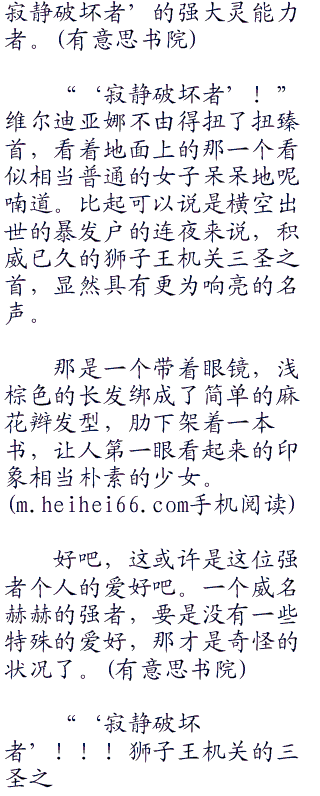 寂静破坏者’的强大灵能力
者。(有意思书院)
“‘寂静破坏者’！”
维尔迪亚娜不由得扭了扭臻
首，看着地面上的那一个看
似相当普通的女子呆呆地呢
喃道。比起可以说是横空出
世的暴发户的连夜来说，积
威已久的狮子王机关三圣之
首，显然具有更为响亮的名
声。
那是一个带着眼镜，浅
棕色的长发绑成了简单的麻
花辫发型，肋下架着一本
书，让人第一眼看起来的印
象相当朴素的少女。
(m.heihei66.com手机阅读)
好吧，这或许是这位强
者个人的爱好吧。一个威名
赫赫的强者，要是没有一些
特殊的爱好，那才是奇怪的
状况了。(有意思书院)
“‘寂静破坏
者’！！！狮子王机关的三
圣之